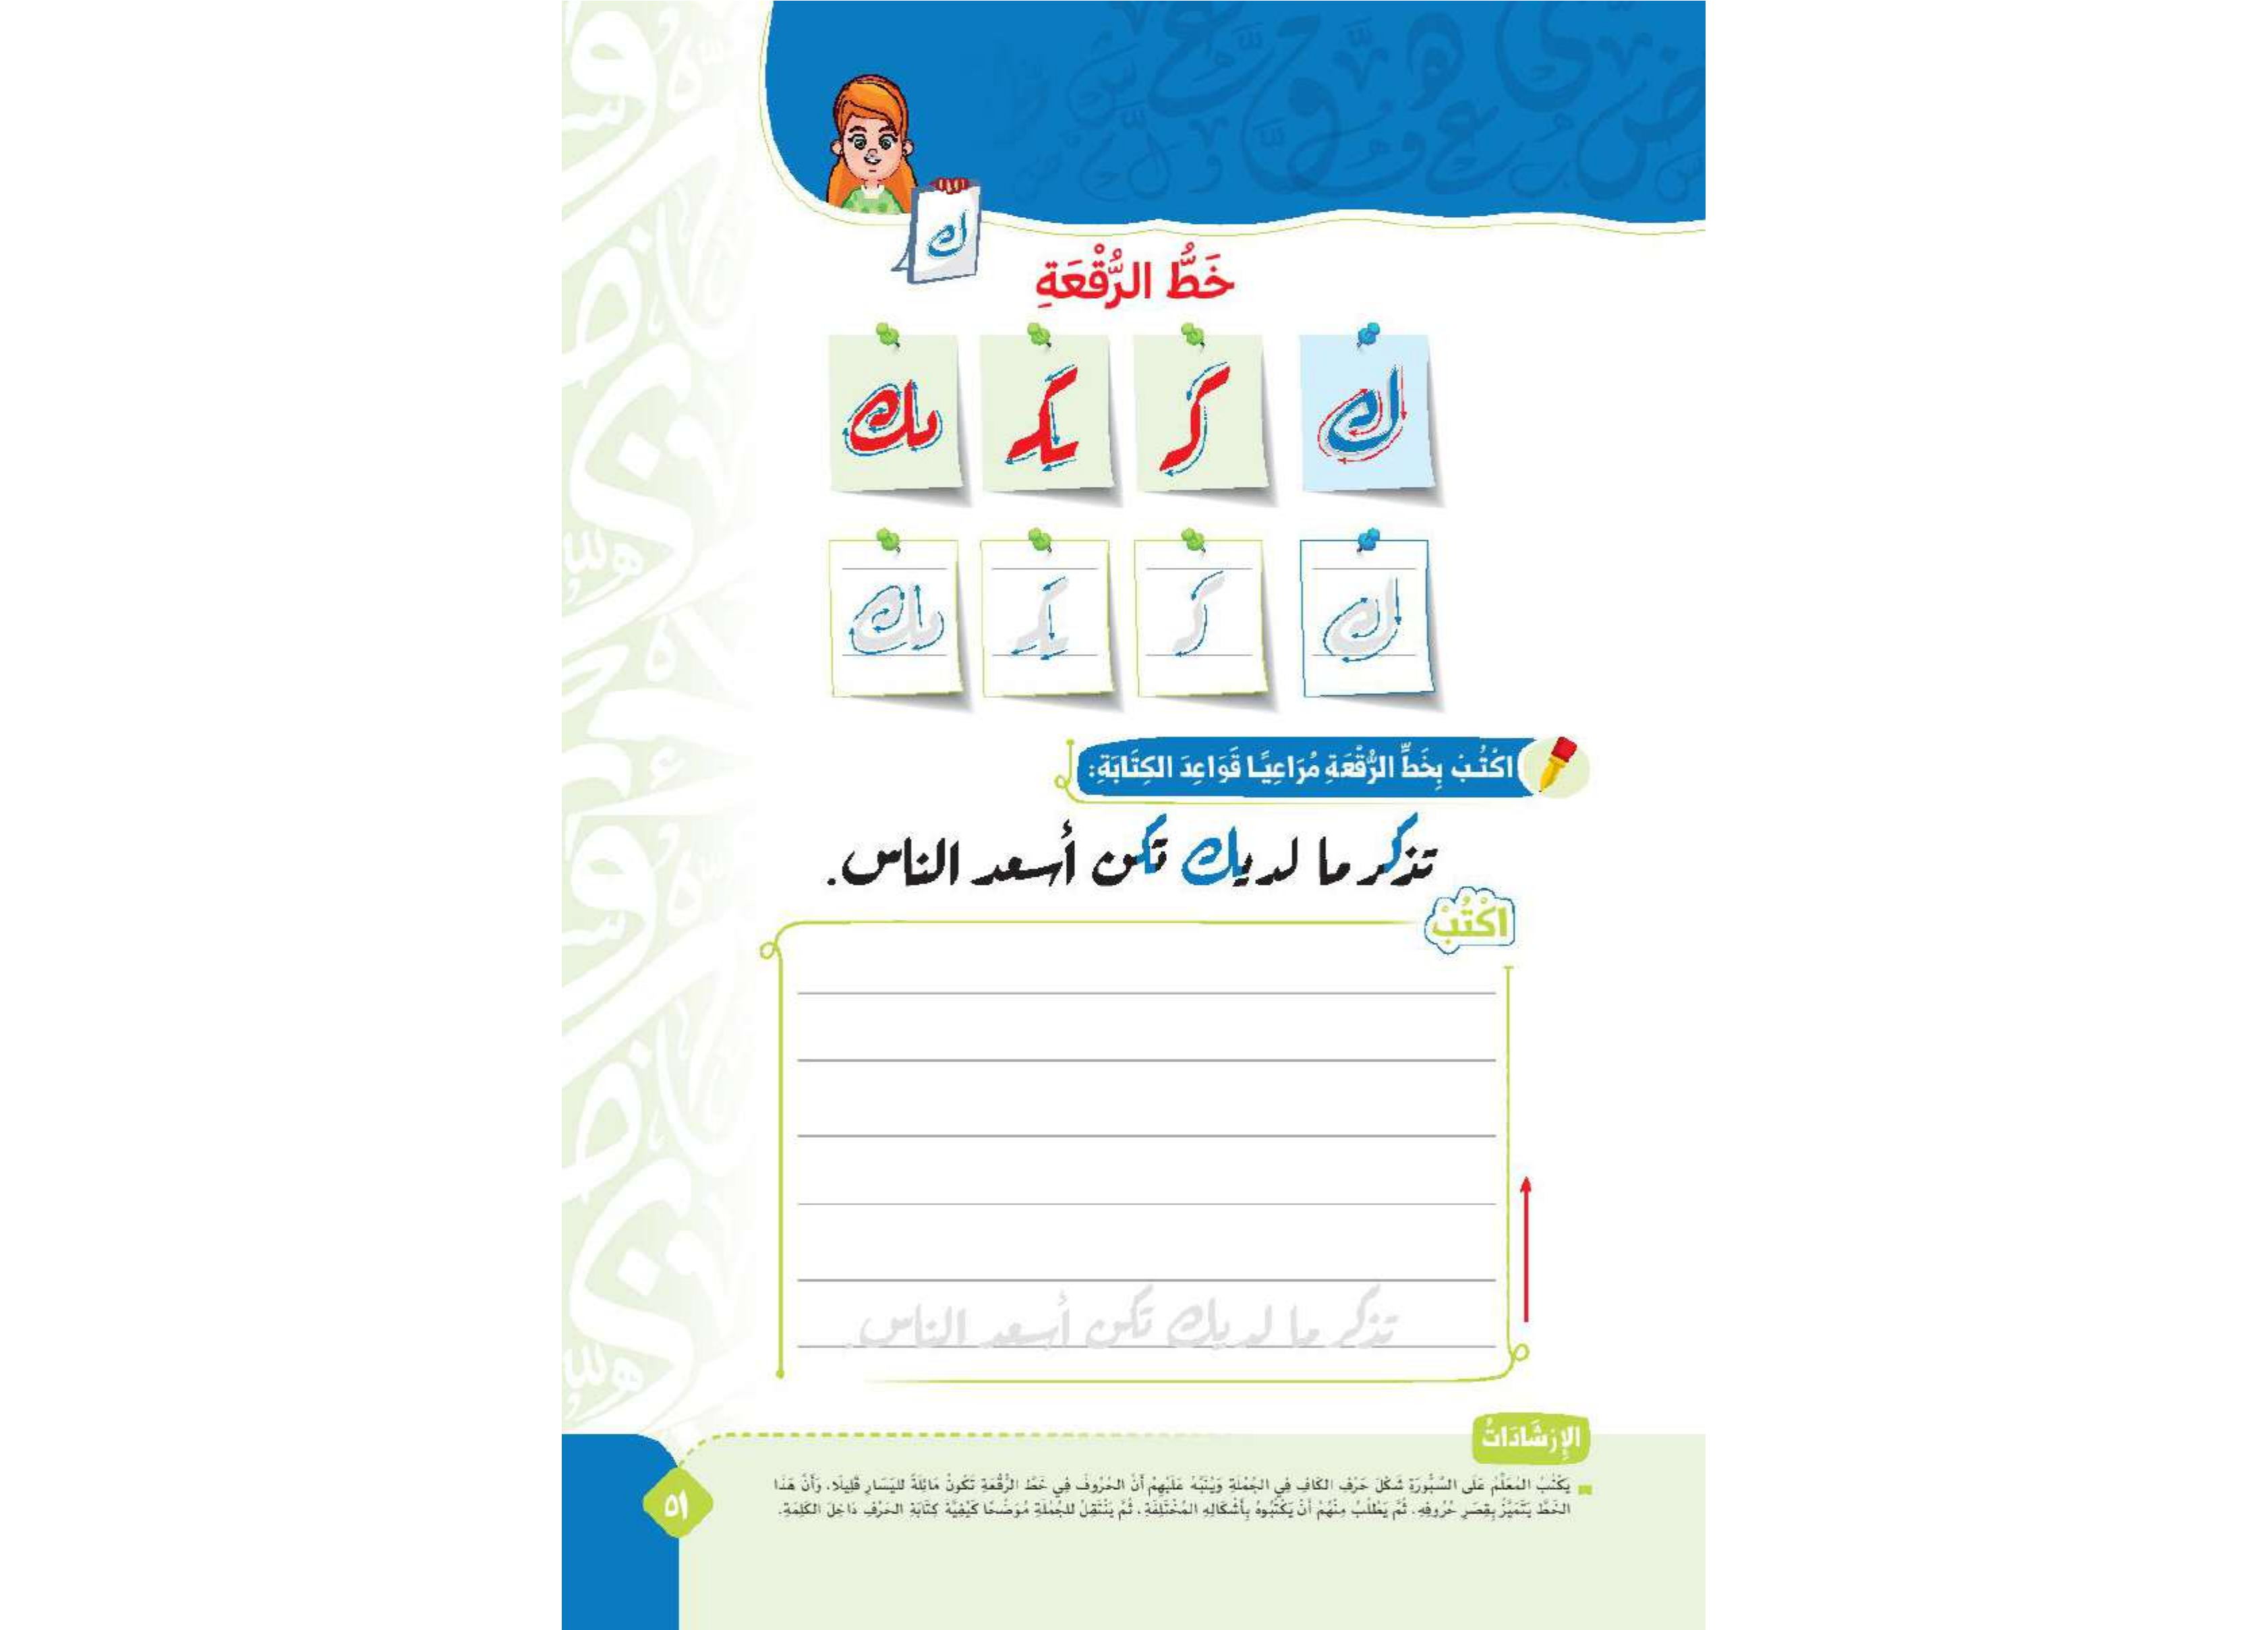 ك
خَطُّ الرُّقْعَةِ
ك كـ ـكـ ـك
ك كـ ـكـ ـك
اكْتُبْ بِخَطِّ الرُّقْعَةِ مُرَاعِيًا قَوَاعِدَ الكِتَابَةِ:
تذكر ما لديك تكن أسعد الناس.
اكْتُبْ
تذكر ما لديك تكن أسعد الناس.
الإِرْشَادَاتُ
يَكْتُبُ المُعَلِّمُ عَلَى السَّبُّورَةِ شَكْلَ حَرْفِ الكَافِ فِي الجُمْلَةِ وَيُنَبِّهُ عَلَيْهِمْ أَنَّ الحُرُوفَ فِي خَطِّ الرُّقْعَةِ تَكُونُ مَائِلَةً لليَسَارِ قَلِيلًا، وَأَنَّ هَذَا
الخَطَّ يَتَمَيَّزُ بِقِصَرِ حُرُوفِهِ، ثُمَّ يَطْلُبُ مِنْهُمْ أَنْ يَكْتُبُوهُ بِأَشْكَالِهِ المُخْتَلِفَةِ، ثُمَّ يَنْتَقِلُ للجُمْلَةِ مُوَضِّحًا كَيْفِيَّةَ كِتَابَةِ الحَرْفِ دَاخِلَ الكَلِمَةِ.
٥١